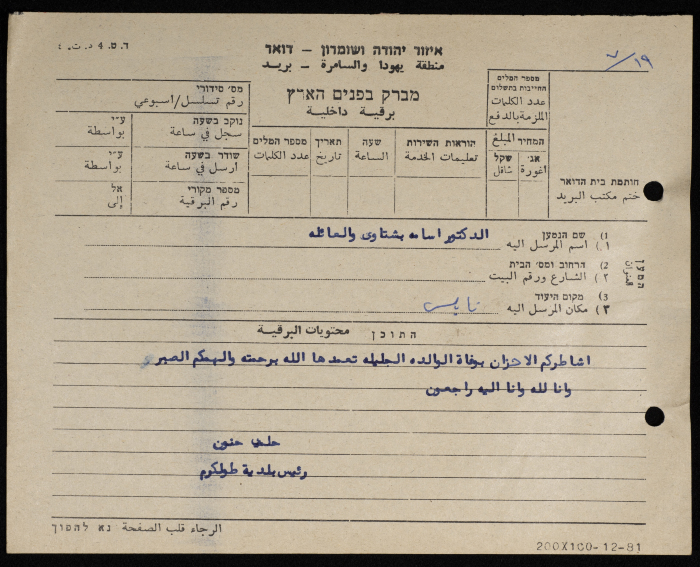 ד.ט. 4 ד.ת. 4
איזור יהודה ושומרון - דואר
منطقة يهودا والسامرة - بريد
٧/١٩
מברק בפנים הארץ
برقية داخلية
מס׳ סידורי
رقم تسلسل/اسبوعي
מספר המלים
החייבות בתשלום
عدد الكلمات
الملزمة بالدفع
נוקב בשעה ע״י
سجل في ساعة بواسطة
שודר בשעה ע״י
ارسل في ساعة بواسطة
מספר מקורי אל
رقم البرقية إلى
מספר המלים
عدد الكلمات
תאריך
تاريخ
שעה
الساعة
הוראות השירות
تعليمات الخدمة
המחיר المبلغ
שקל
شاقل
אג׳
اغورة
חותמת בית הדואר
ختم مكتب البريد
המען
العنوان
1) שם הנמען
١) اسم المرسل اليه الدكتور اسامه بشتاوي والعائله
2) הרחוב ומס׳ הבית
٢) الشارع ورقم البيت
3) מקום היעוד
٣) مكان المرسل اليه نابلس
התוכן محتويات البرقية
اشاطركم الاحزان بوفاة الوالده الجليله تغمدها الله برحمته والهمكم الصبر
وانا لله وانا اليه راجعون
حلمي حنون
رئيس بلدية طولكرم
الرجاء قلب الصفحة נא להפוך
200X100-12-81